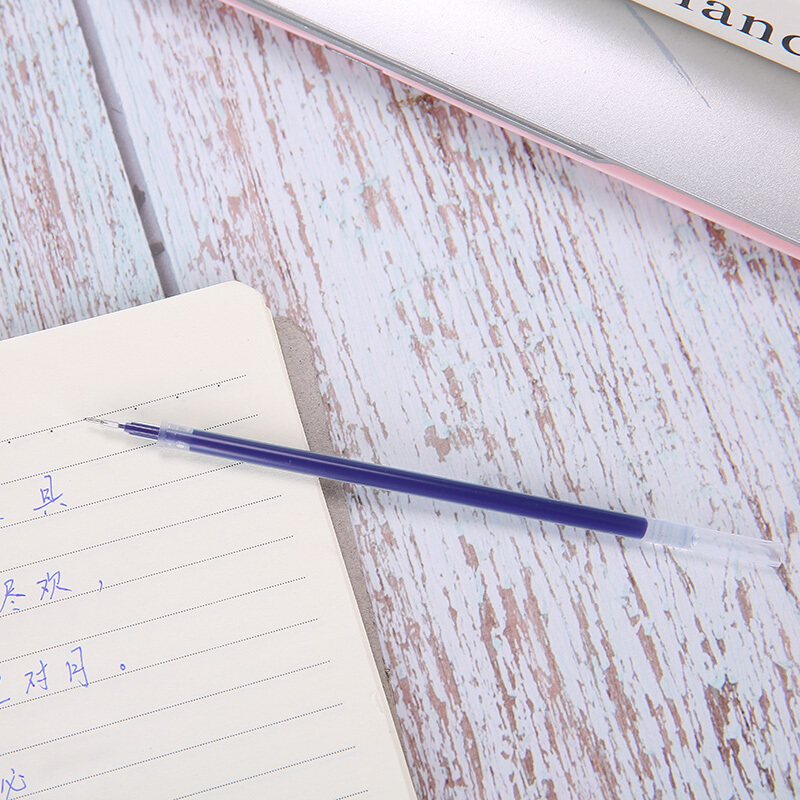 lanc
具
尽欢，
对月。
必